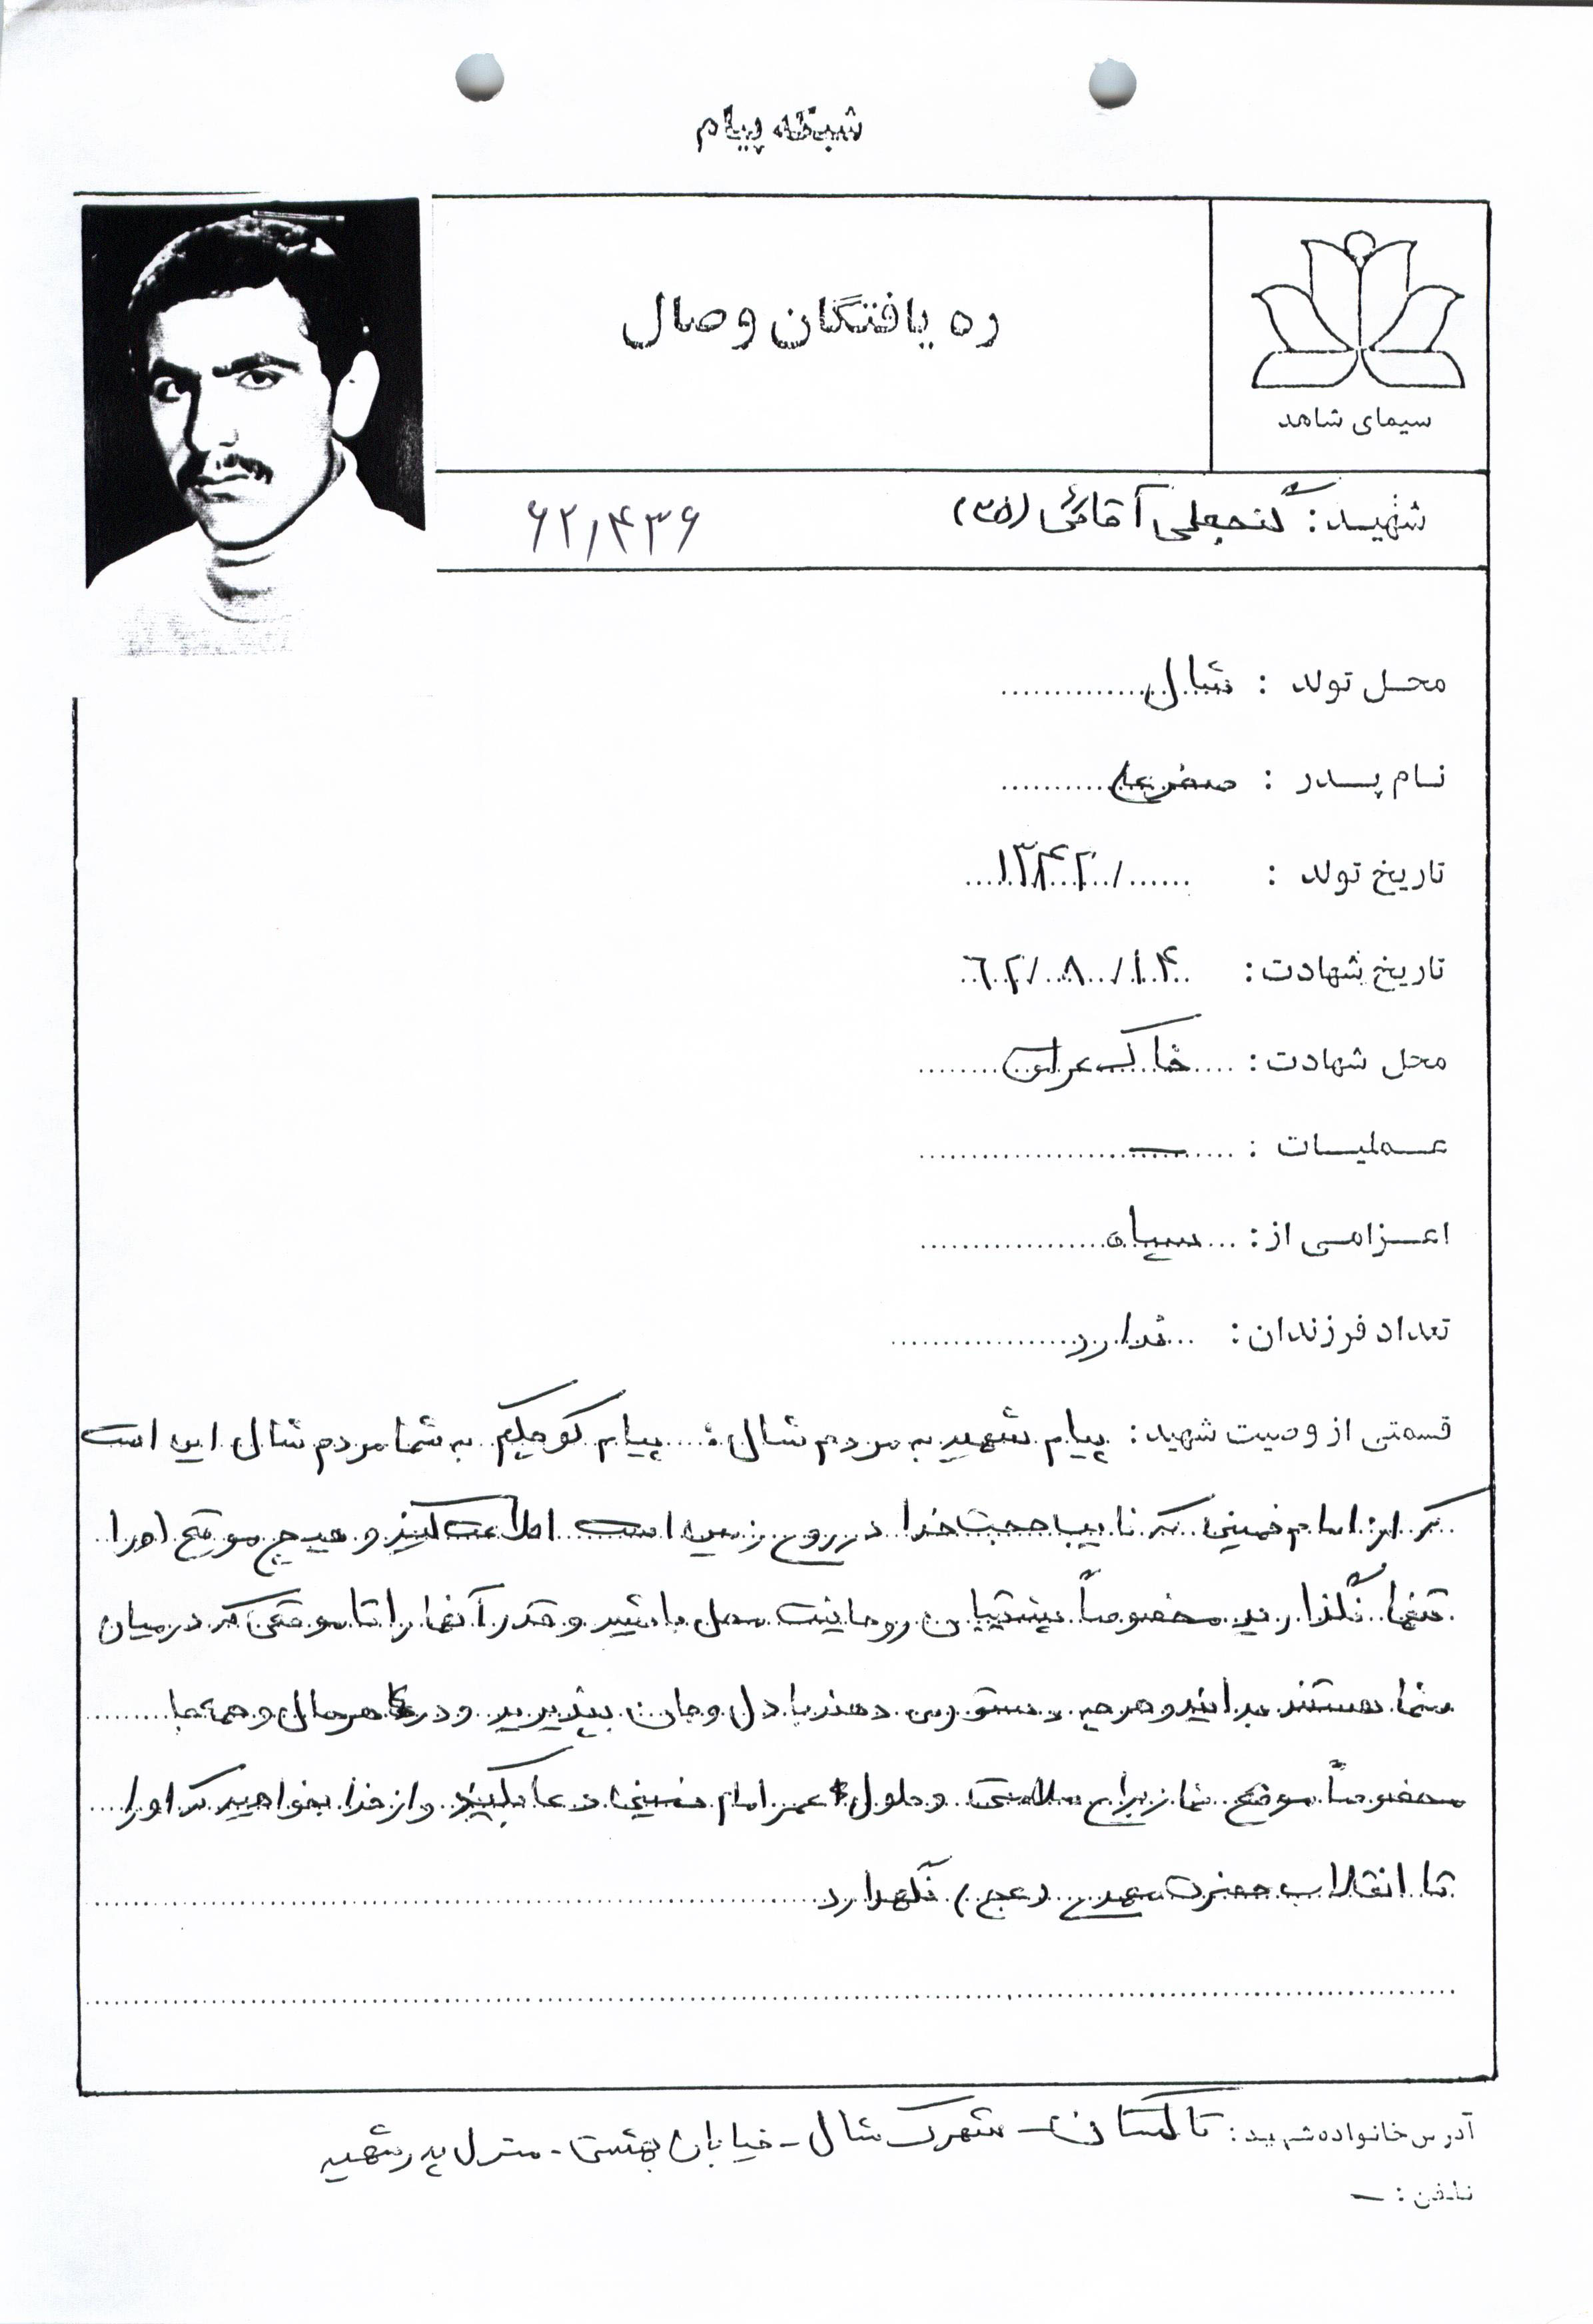 شبکه پیام
ره یافتگان وصال
سیمای شاهد
شهید: گنجعلی آقائی (۳۵)
۶۲/۴۳۶
محل تولد : شال
نام پدر : صفرعلی
تاریخ تولد : / ۱۳۴۲
تاریخ شهادت: ۱۴/ ۸/ ۶۲
محل شهادت: خاک عراق
عملیات : —
اعزامی از: سپاه
تعداد فرزندان: ندارد
قسمتی از وصیت شهید: پیام شهید به مردم شال: پیام کوچکم به شما مردم شال این است
که از امام خمینی که نایب حجت خدا در روی زمین است اطاعت کنید و هیچ موقع او را
تنها نگذارید مخصوصاً پشتیبان روحانیت محل باشید و قدر آنها را تا موقعی که در میان
شما هستند بدانید و هر چه دستور می دهند با دل و جان بپذیرید و در هر حال و همه جا
مخصوصاً موقع نماز برای سلامتی و طول عمر امام خمینی دعا بکنید و از خدا بخواهید که او را
تا انقلاب حضرت مهدی (عج) نگهدارد
آدرس خانواده شهید: تاکستان - شهرک شال - خیابان بهشتی - منزل پدر شهید
تلفن : —